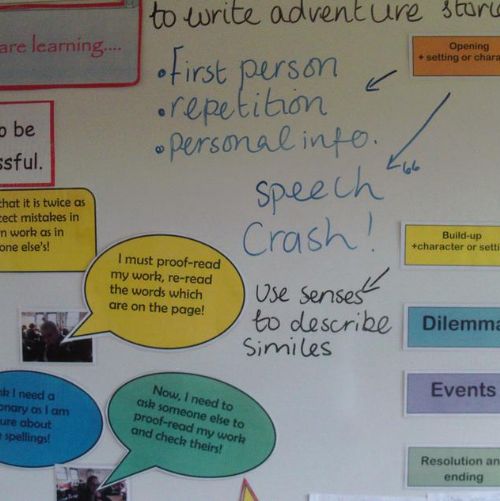 to write adventure stories
are learning....
•First person
•repetition
•personal info.
Opening
+ setting or chara
o be
ssful.
speech "
Crash!
that it is twice as
tect mistakes in
n work as in
one else's!
Build-up
+character or setti
I must proof-read
my work, re-read
the words which
are on the page!
Use senses
to describe
similes
Dilemma
Events
k I need a
onary as I am
ure about
spellings!
Now, I need to
ask someone else to
proof-read my work
and check theirs!
Resolution an
ending